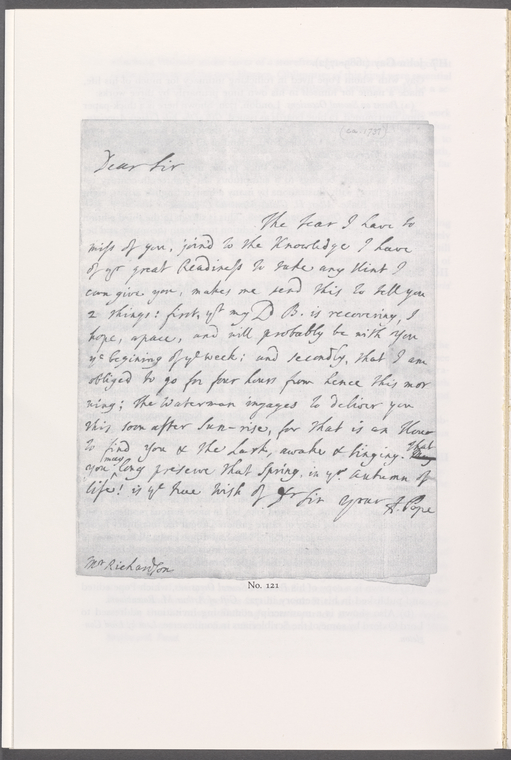 Dear Sir
The Fear I have to
miss of you, join'd to the Knowledge I have
of yr great Readiness to take any Hint I
can give you, makes me send this to tell you
2 things: first, yt my Ld B. is recovering, I
hope, apace, and will probably be with you
ye begining of ye week: and secondly, that I am
obliged to go for four hours from hence this mor
ning; the Waterman ingages to deliver you
this soon after Sun-rise, for that is an Hour
to find You & the Lark, awake & singing. That
you may long preserve that Spring, in ye Autumn of
life! is ye true Wish of Dr Sir Your A. Pope
Mr Richardson
No. 121